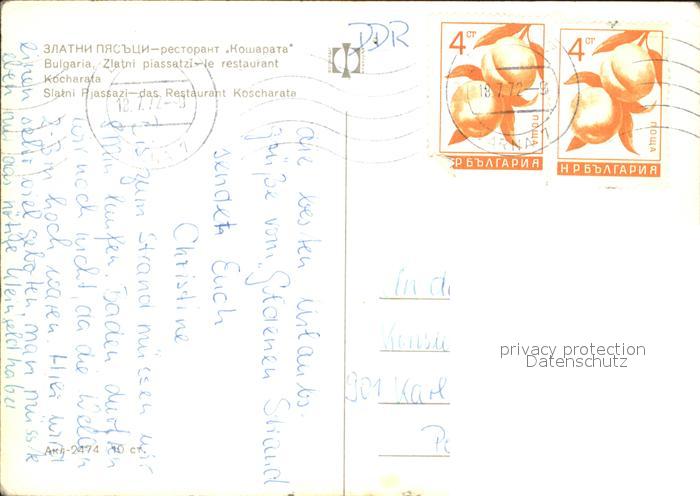 ЗЛАТНИ ПЯСЪЦИ—ресторант „Кошарата"
Bulgaria, Zlatni piassatzi—le restaurant
Kocharata
Slatni Pjassazi—das Restaurant Koscharata
DDR
4 СТ
ПОЩА
НР БЪЛГАРИЯ
4 СТ
ПОЩА
НР БЪЛГАРИЯ
18.7.72
18.7.72
Die besten Urlaubs-
grüße vom „Goldenen Strand
senden Euch
Christine
Bis zum Strand müssen wir
laufen. Baden durften
wir noch nicht, da die Wellen
2-3 m hoch waren. Hier wird
einem sehr viel geboten, man müsste
nur das nötige Kleingeld haben
An d
Konsu
901 Karl
Акл-2474 10 ст.
privacy protection
Datenschutz